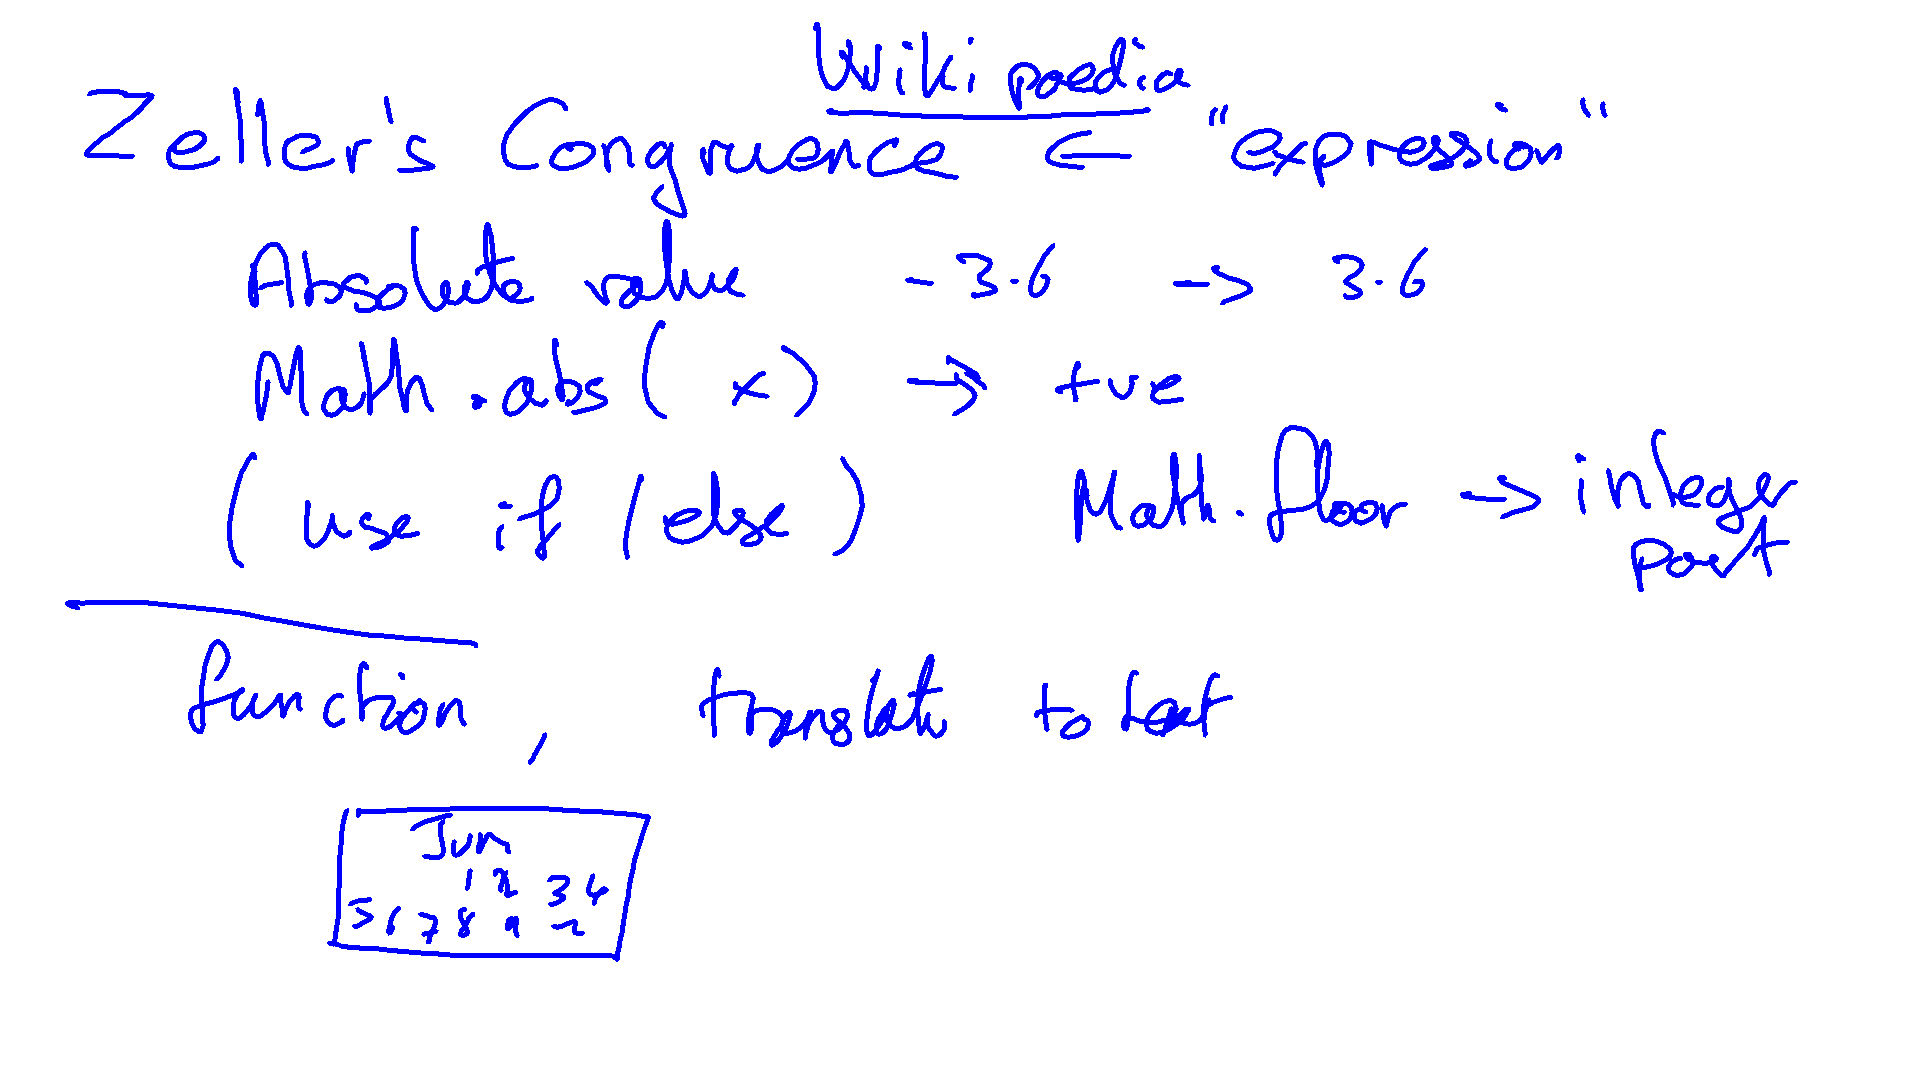 Wikipaedia
Zeller's Congruence ← "expression"
Absolute value -3.6 → 3.6
Math.abs(x) → +ve
(use if / else) Math.floor → integer
part
function, translate to text
Jun
1 2 3 4
5 6 7 8 9